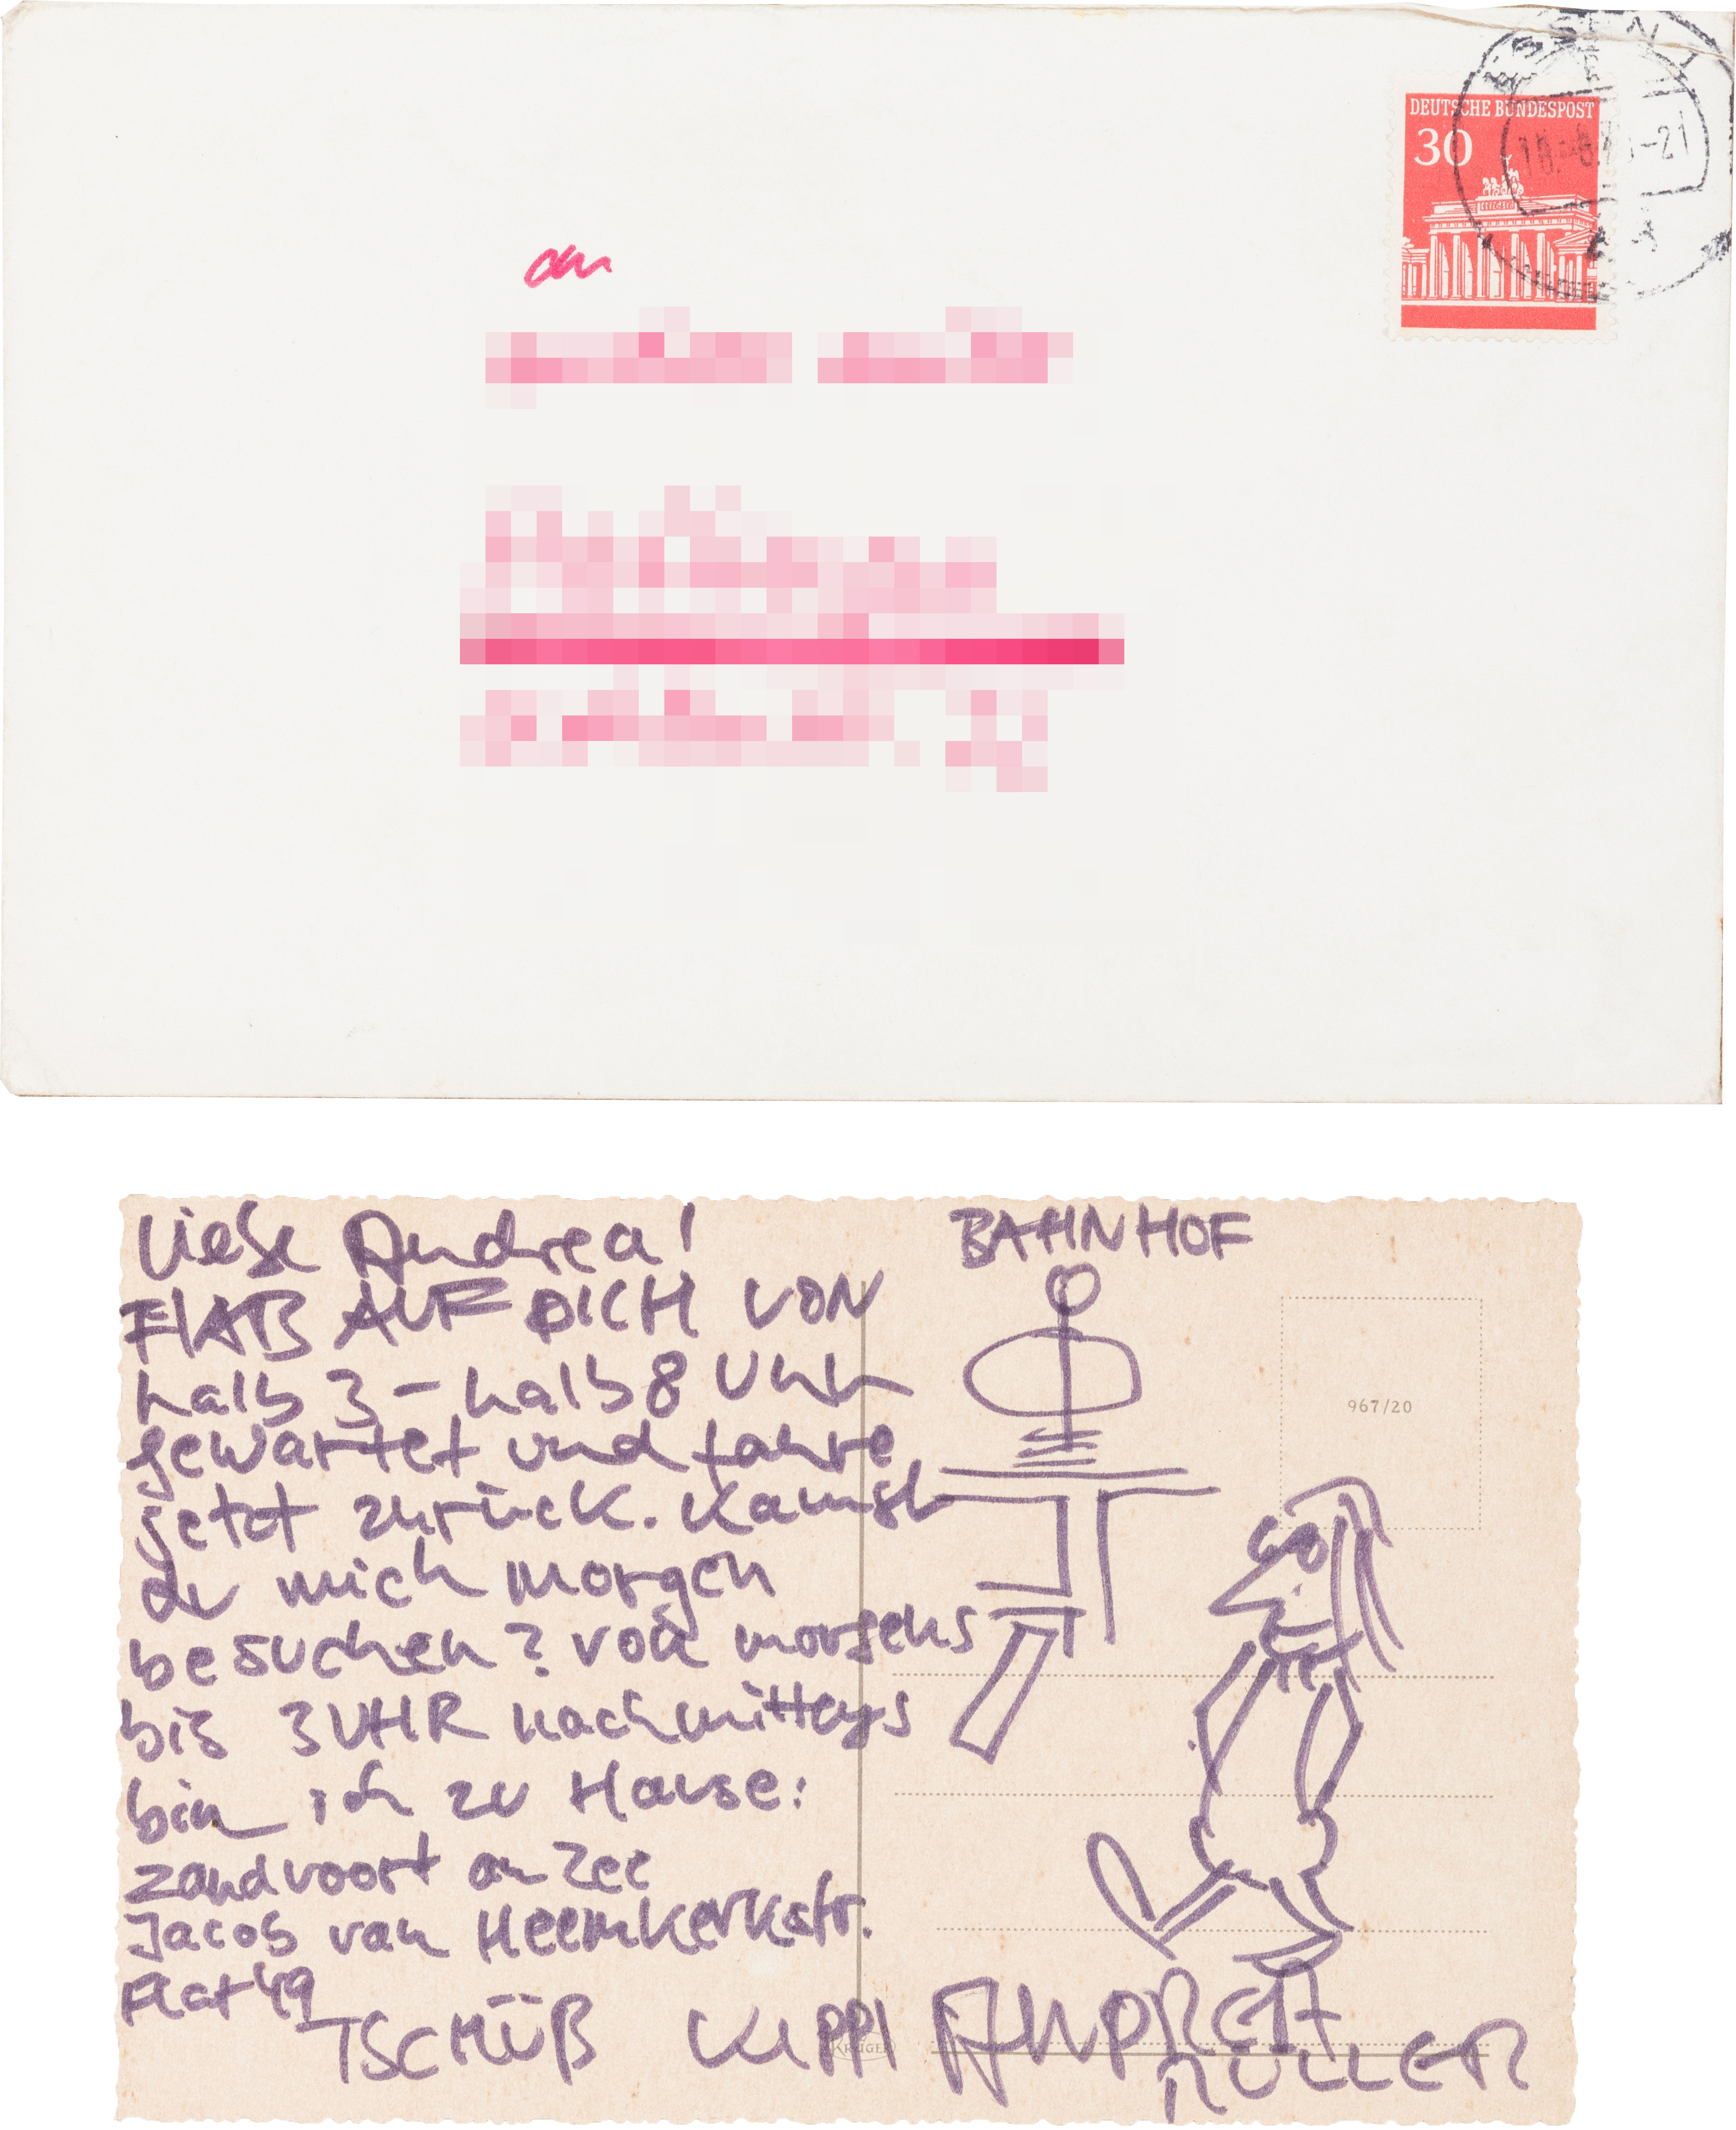 ESSEN 1
DEUTSCHE BUNDESPOST
30
-21
an
Liebe Andrea!
HAB AUF DICH VON
halb 3 - halb 8 Uhr
gewartet und fahre
jetzt zurück. Kannst
du mich morgen
besuchen? von morgens
bis 3 UHR nachmittags
bin ich zu Hause:
zandvoort an Zee
Jacob van Heemkerkstr.
Flat 49
TSCHÜß KIPPI
BAHNHOF
967/20
KRÜGER
ANDREA
MÜLLER